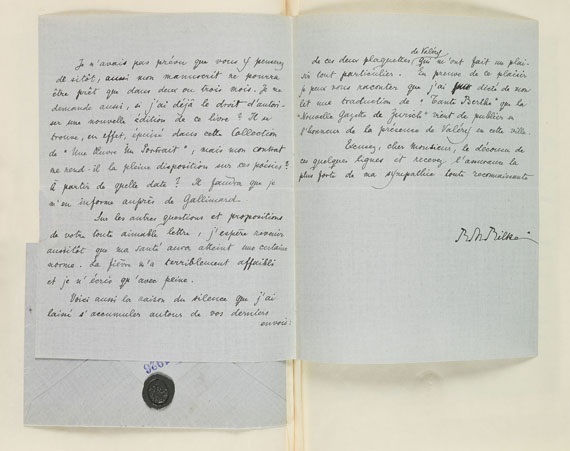 Je n'avais pas prévu que vous y pensiez
de sitôt, aussi mon manuscrit ne pourra
être prêt que dans deux ou trois mois. Je me
demande aussi, si j'ai déjà le droit d'autori-
ser une nouvelle édition de ce livre? Il se
trouve, en effet, épuisé dans cette Collection
de "Une Œuvre Un Portrait", mais mon contrat
me rend-il la pleine disposition sur ces poésies?
à partir de quelle date? Il faudra que je
m'en informe auprès de Gallimard.
Sur les autres questions et propositions
de votre toute aimable lettre, j'espère revenir
aussitôt que ma santé aura atteint une certaine
norme. La fièvre m'a terriblement affaibli
et je n'écris qu'avec peine.
Voici aussi la raison du silence que j'ai
laissé s'accumuler autour de vos derniers
envois:
de Valéry
de ces deux plaquettes, qui m'ont fait un plai-
sir tout particulier. En preuve de ce plaisir
je peux vous raconter que j'ai dicté de mon
lit une traduction de "Tante Berthe" que la
"Nouvelle Gazette de Zurich" vient de publier en
l'honneur de la présence de Valéry en cette ville.
Excusez, cher monsieur, le décousu de
ces quelques lignes et recevez l'assurance la
plus forte de ma sympathie toute reconnaissante
R. M. Rilke